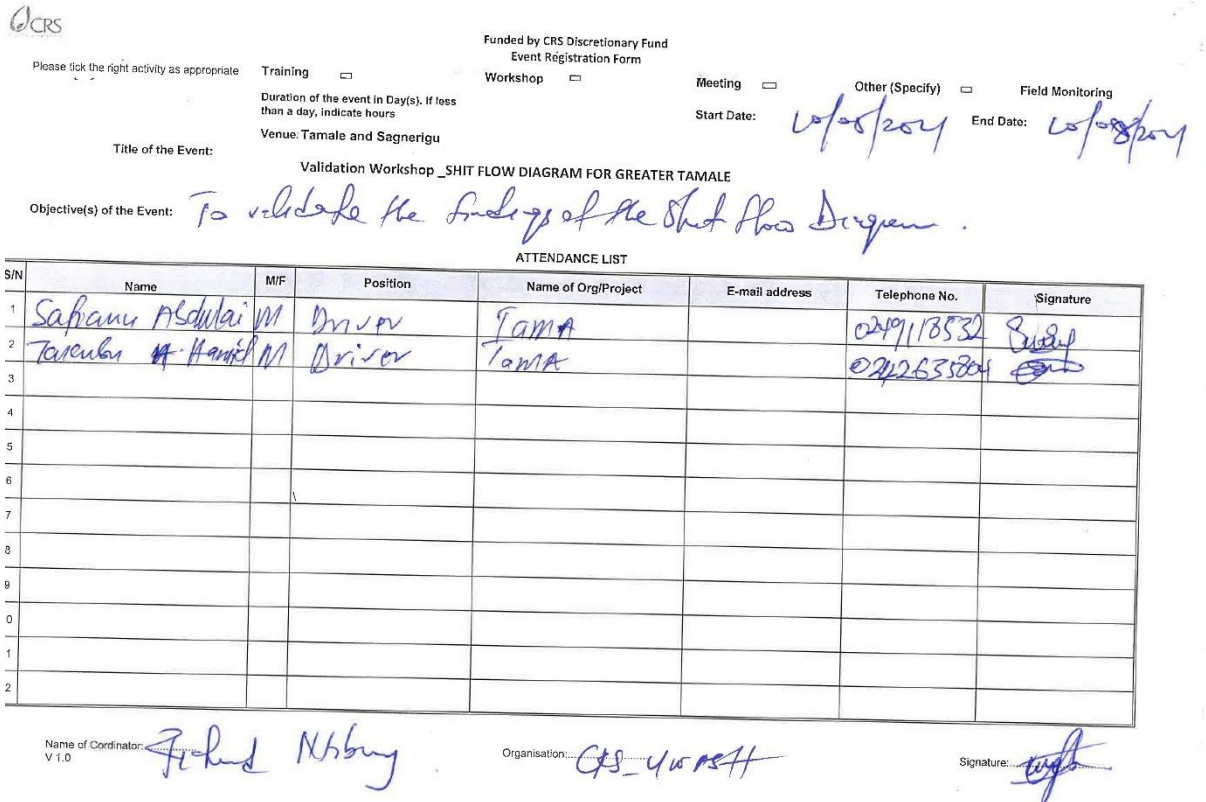 CRS
Funded by CRS Discretionary Fund
Event Registration Form
Please tick the right activity as appropriate Training Workshop Meeting Other (Specify) Field Monitoring
Duration of the event in Day(s). If less
than a day, indicate hours
Start Date: End Date:
Venue: Tamale and Sagnerigu
Title of the Event:
Validation Workshop _SHIT FLOW DIAGRAM FOR GREATER TAMALE
Objective(s) of the Event: To validate the findings of the Shit Flow Diagram.
ATTENDANCE LIST
S/N Name M/F Position Name of Org/Project E-mail address Telephone No. Signature
1 Safianu Abdulai M Driver TamA
2 Hamid M Driver TamA
3
4
5
6
7
8
9
0
1
2
Name of Cordinator: Richard Organisation: Signature:
V 1.0